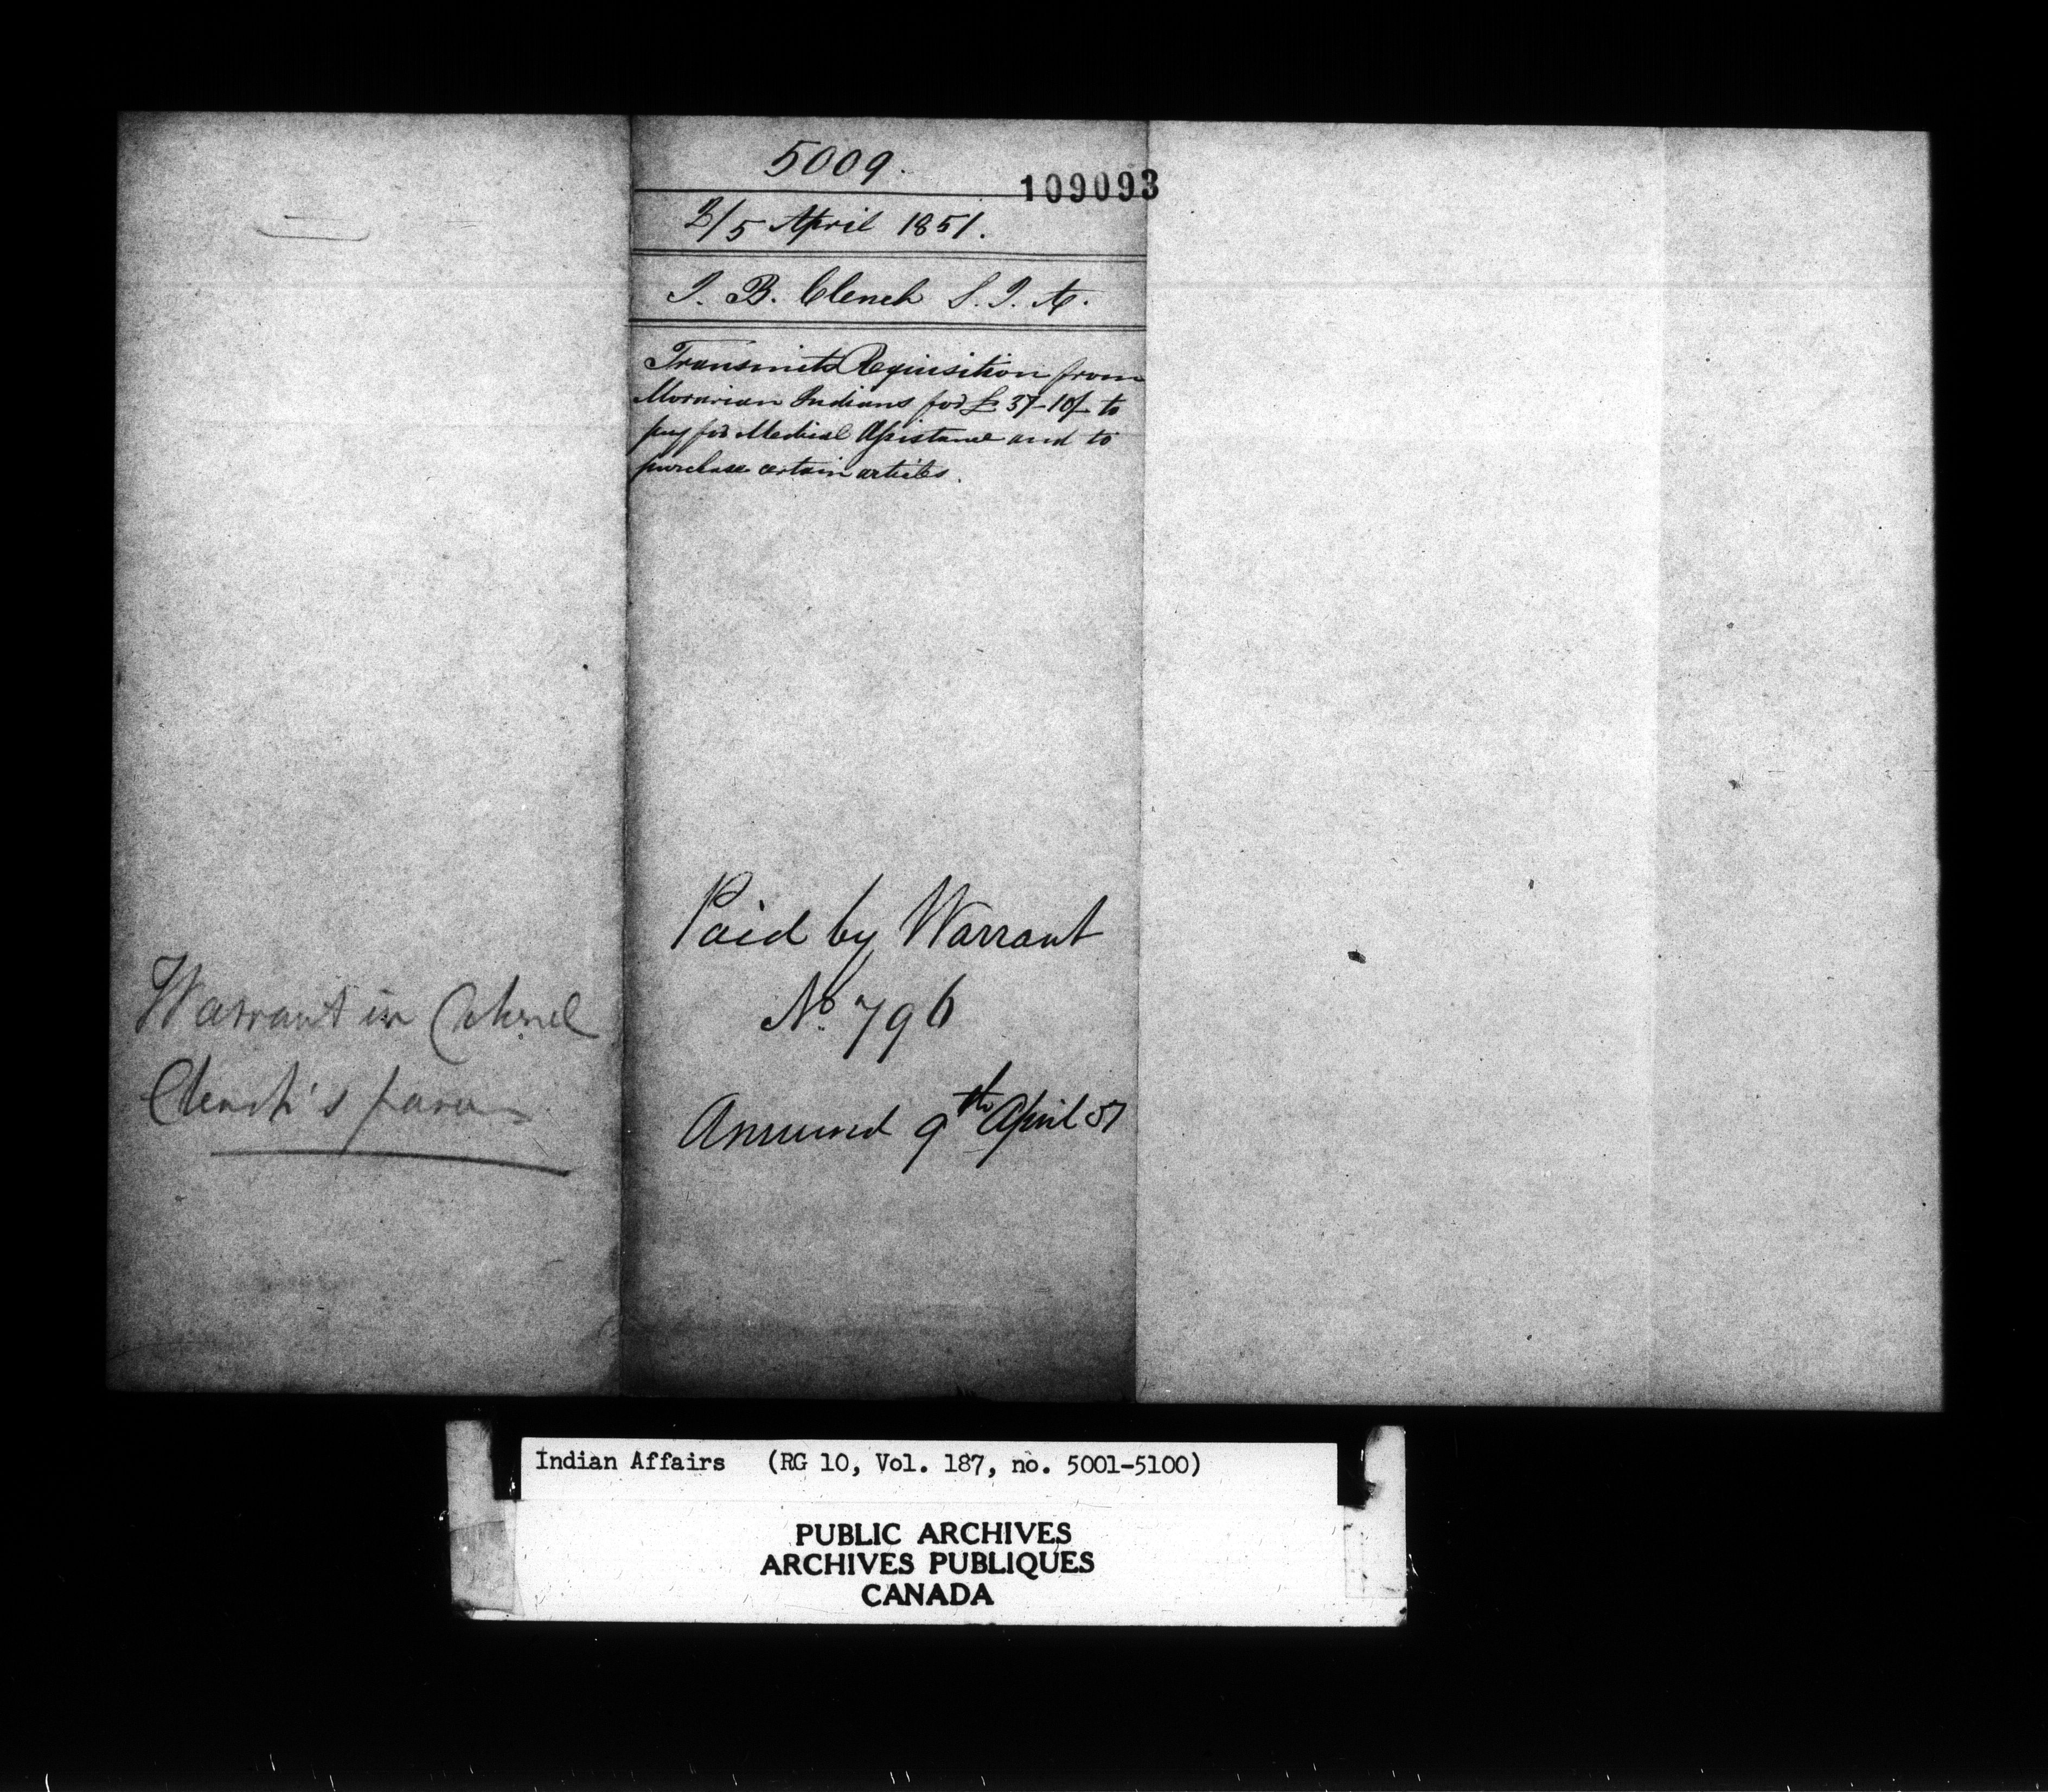 Warrant in Colonel
Clench's favor
5009.
109093
2/5 April 1851.
J. B. Clench S. I. A.
Transmits Requisition from
Moravian Indians for £37-10/- to
pay for Medical Assistance and to
purchase certain articles.
Paid by Warrant
No. 796
Answered 9th April 51
Indian Affairs (RG 10, Vol. 187, no. 5001-5100)
PUBLIC ARCHIVES
ARCHIVES PUBLIQUES
CANADA